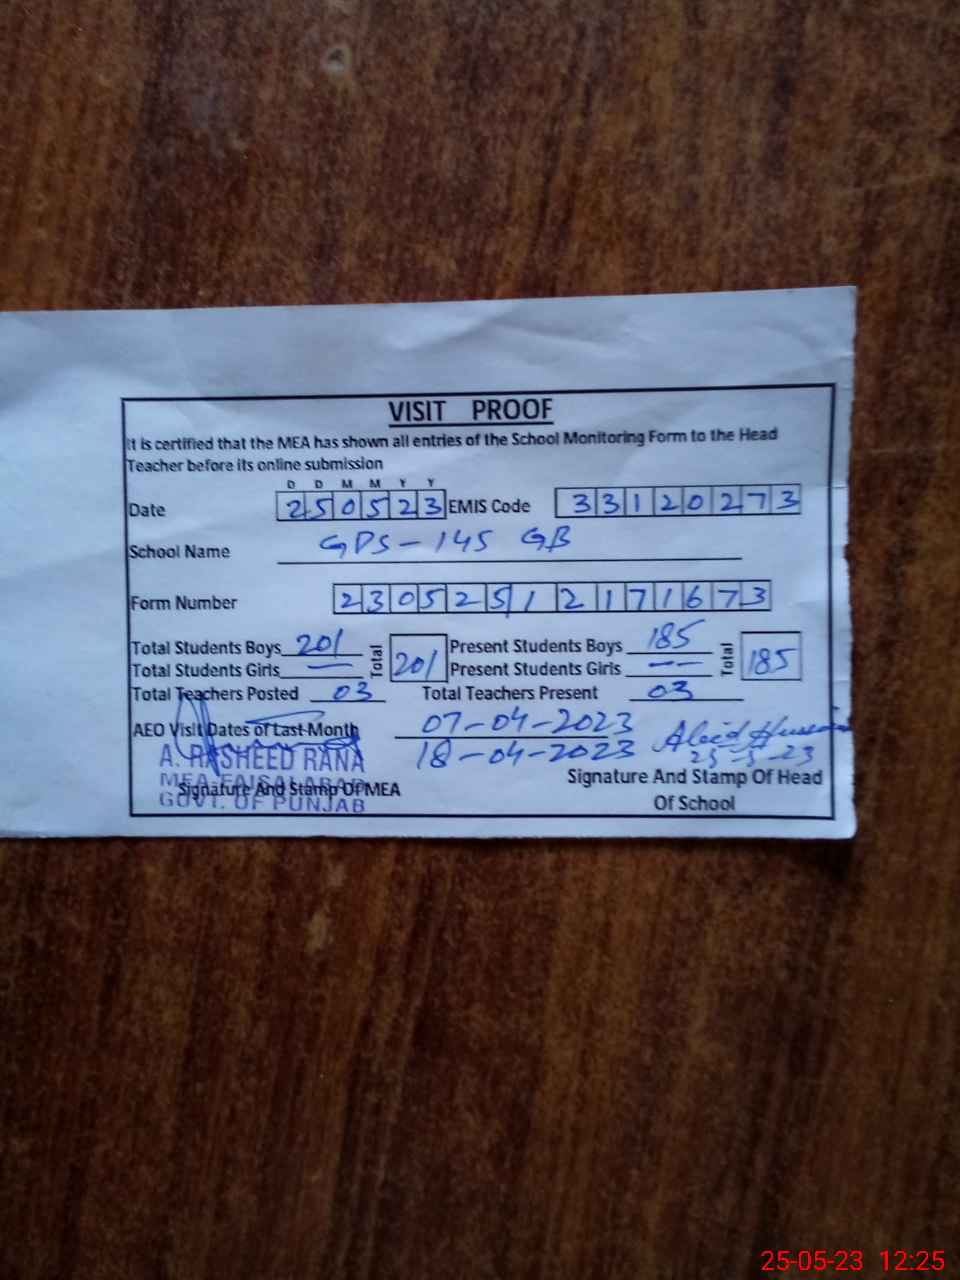 VISIT PROOF
It is certified that the MEA has shown all entries of the School Monitoring Form to the Head
Teacher before its online submission
D D M M Y Y
Date 250523 EMIS Code 33120273
School Name GPS-145 GB
Form Number 23052512171673
Total Students Boys 201 Total 201 Present Students Boys 185 Total 185
Total Students Girls — Present Students Girls —
Total Teachers Posted 03 Total Teachers Present 03
AEO Visit Dates of Last Month 07-04-2023
18-04-2023
Abid Hussain
25-5-23
A. RASHEED RANA
MEA FAISALABAD
GOVT. OF PUNJAB
Signature And Stamp Of MEA
Signature And Stamp Of Head
Of School
25-05-23 12:25